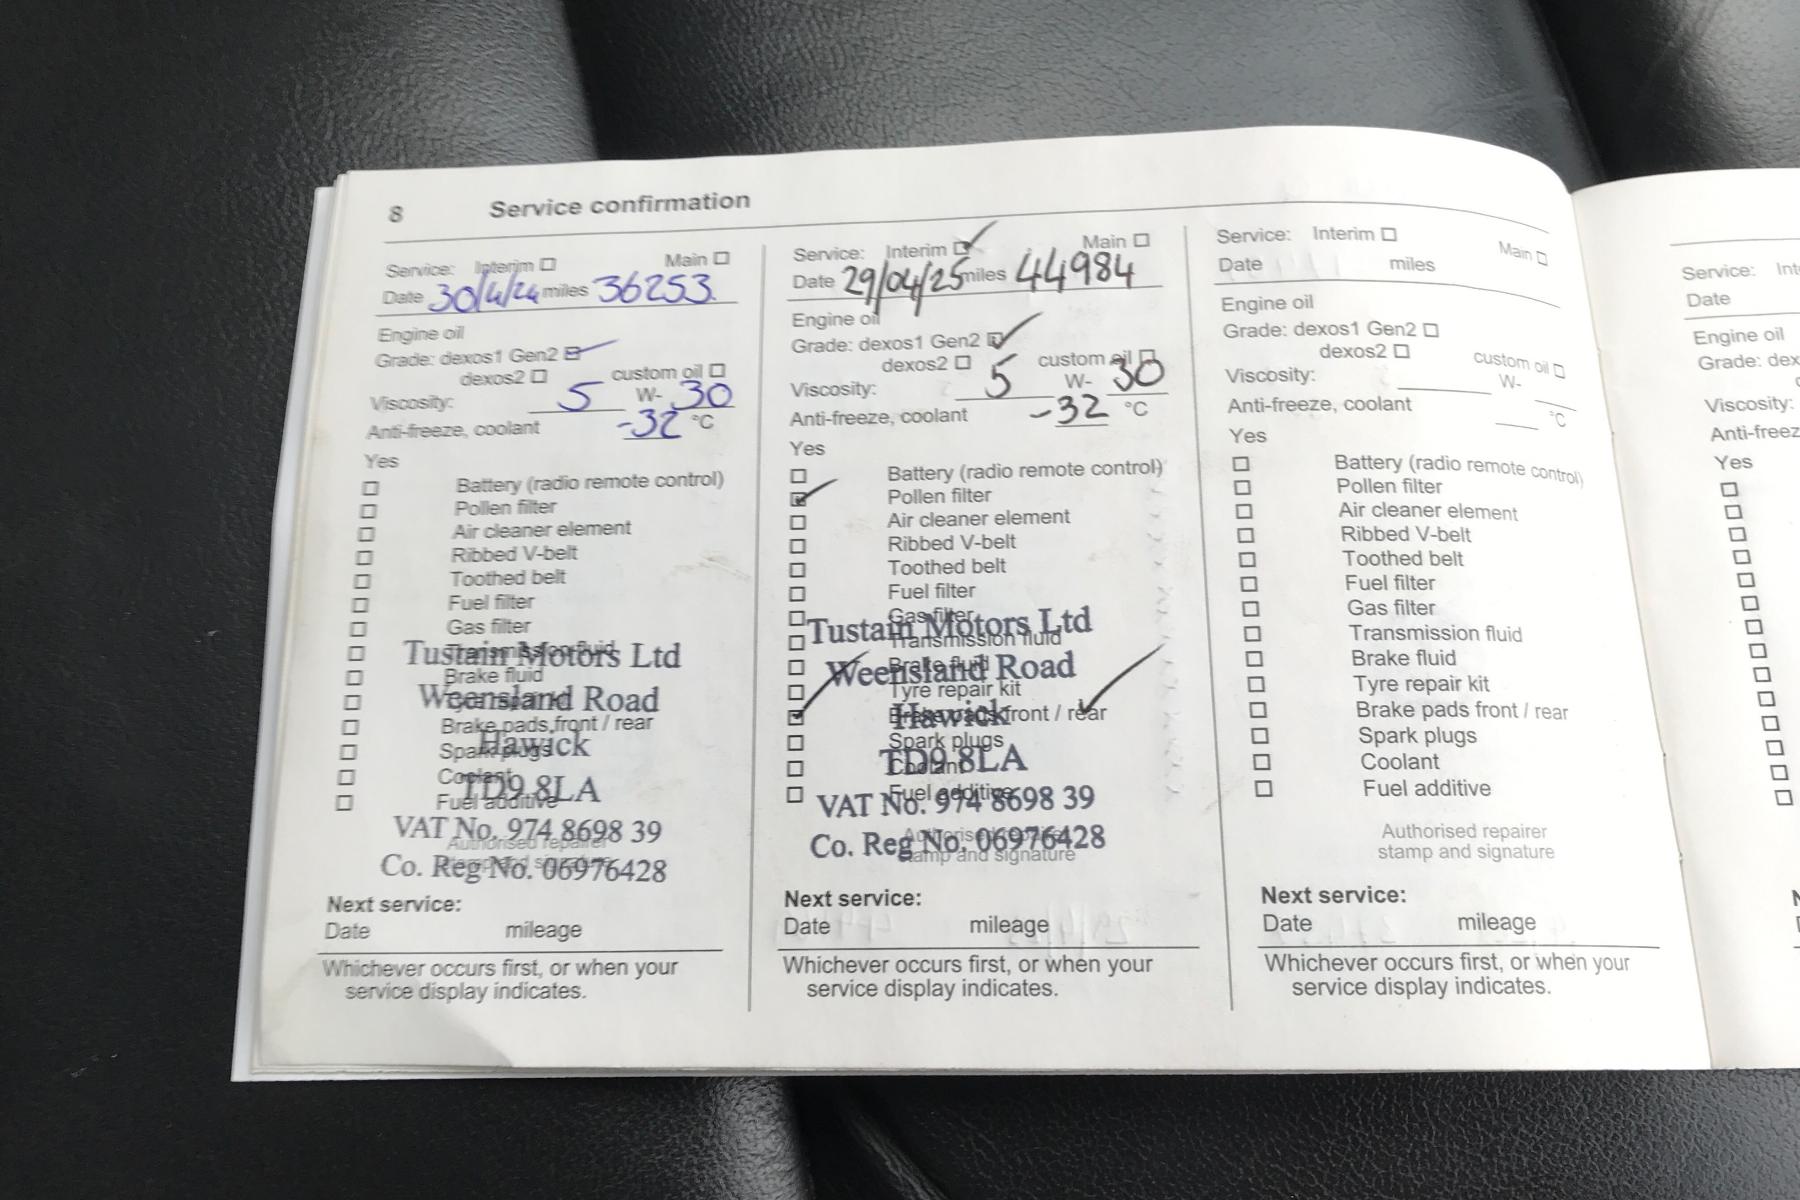 8 Service confirmation
Service: Interim Main
Date 30/4/24 miles 36253
Engine oil
Grade: dexos1 Gen2
dexos2 custom oil
Viscosity: 5 W- 30
Anti-freeze, coolant -32 °C
Yes
Battery (radio remote control)
Pollen filter
Air cleaner element
Ribbed V-belt
Toothed belt
Fuel filter
Gas filter
Transmission fluid
Tustain Motors Ltd
Brake fluid
Weensland Road
Brake pads front / rear
Hawick
Spark plugs
Coolant
TD9 8LA
Fuel additive
VAT No. 974 8698 39
Authorised repairer
Co. Reg No. 06976428
Next service:
Date mileage
Whichever occurs first, or when your
service display indicates.
Service: Interim Main
Date 29/04/25 miles 44984
Engine oil
Grade: dexos1 Gen2
dexos2 custom oil
Viscosity: 5 W- 30
Anti-freeze, coolant -32 °C
Yes
Battery (radio remote control)
Pollen filter
Air cleaner element
Ribbed V-belt
Toothed belt
Fuel filter
Gas filter
Tustain Motors Ltd
Transmission fluid
Brake fluid
Weensland Road
Tyre repair kit
Brake pads front / rear
Hawick
Spark plugs
TD9 8LA
Coolant
Fuel additive
VAT No. 974 8698 39
Authorised repairer
Co. Reg No. 06976428
stamp and signature
Next service:
Date mileage
Whichever occurs first, or when your
service display indicates.
Service: Interim Main
Date miles
Engine oil
Grade: dexos1 Gen2
dexos2 custom oil
Viscosity: W-
Anti-freeze, coolant °C
Yes
Battery (radio remote control)
Pollen filter
Air cleaner element
Ribbed V-belt
Toothed belt
Fuel filter
Gas filter
Transmission fluid
Brake fluid
Tyre repair kit
Brake pads front / rear
Spark plugs
Coolant
Fuel additive
Authorised repairer
stamp and signature
Next service:
Date mileage
Whichever occurs first, or when your
service display indicates.
Service: Int
Date
Engine oil
Grade: dex
Viscosity:
Anti-freez
Yes